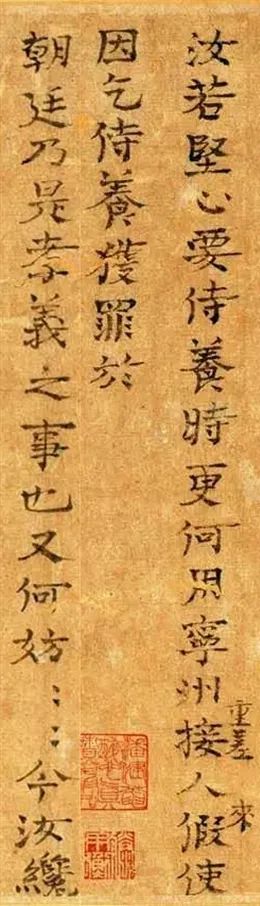 汝若堅心要侍養時更何用寧州重差接人來假使
因乞侍養獲罪於
朝廷乃是孝義之事也又何妨〻〻今汝纔